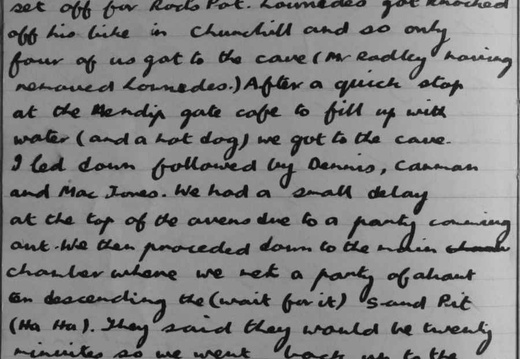 set off for Rods Pot. Lowndes got knocked
off his bike in Churchill and so only
four of us got to the cave (Mr Radley having
removed Lowndes.) After a quick stop
at the Mendip gate cafe to fill up with
water (and a hot dog) we got to the cave.
I led down followed by Dennis, Cannan
and Mac Jones. We had a small delay
at the top of the avens due to a party comming
out. We then proceded down to the main
chamber where we met a party of about
descending the (wait for it) Sand Pit
(Ha Ha). They said they would be twenty
minutes so we went back up to the